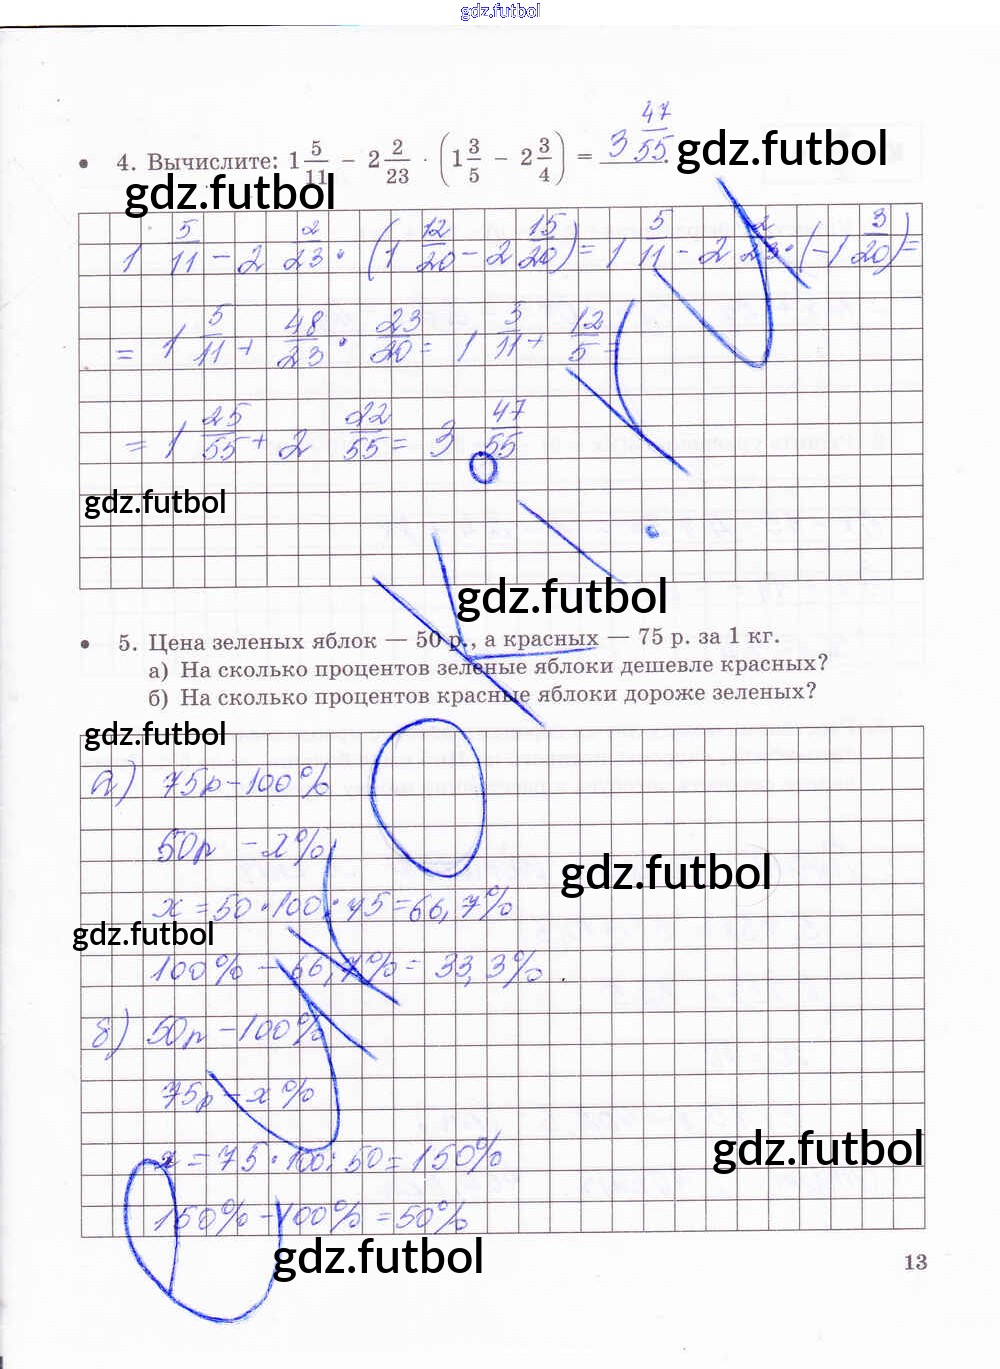 gdz.futbol
4. Вычислите: 1 5/11 − 2 2/23 · (1 3/5 − 2 3/4) = 3 47/55.
gdz.futbol
gdz.futbol
1 5/11 − 2 2/23 · (1 12/20 − 2 15/20) = 1 5/11 − 2 2/23 · (−1 3/20) =
= 1 5/11 + 48/23 · 23/20 = 1 3/11 + 12/5 =
= 1 25/55 + 2 22/55 = 3 47/55
gdz.futbol
gdz.futbol
5. Цена зеленых яблок — 50 р., а красных — 75 р. за 1 кг.
а) На сколько процентов зеленые яблоки дешевле красных?
б) На сколько процентов красные яблоки дороже зеленых?
gdz.futbol
а) 75р − 100%
50р − x%
gdz.futbol
x = 50 · 100 : 75 = 66,7%
gdz.futbol
100% − 66,7% = 33,3%.
б) 50р − 100%
75р − x%
gdz.futbol
x = 75 · 100 : 50 = 150%
150% − 100% = 50%
gdz.futbol
13